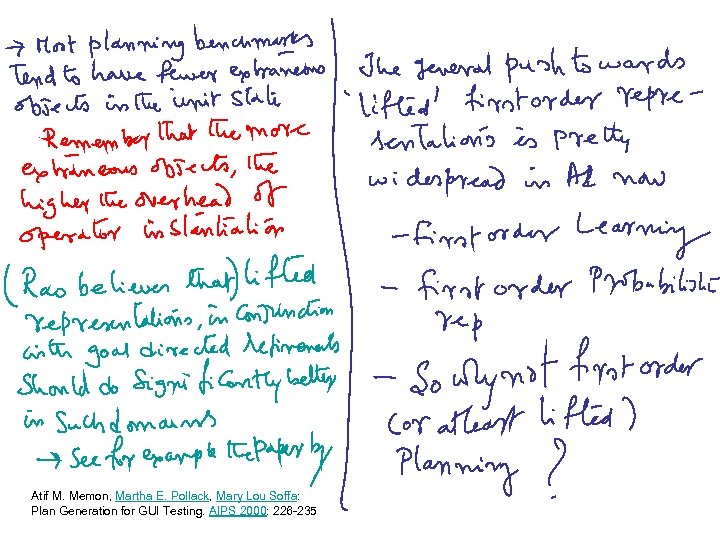 → Most planning benchmarks
tend to have fewer extraneous
objects in the init state
Remember that the more
extraneous objects, the
higher the overhead of
operator instantiation
(Rao believes that) lifted
representations, in conjunction
with goal directed refinements
should do significantly better
in such domains
→ See for example the paper by
Atif M. Memon, Martha E. Pollack, Mary Lou Soffa:
Plan Generation for GUI Testing. AIPS 2000: 226-235
The general push towards
'lifted' first order repre-
sentations is pretty
widespread in AI now
- First order Learning
- first order Probabilistic
rep
- So why not first order
(or at least lifted)
Planning ?